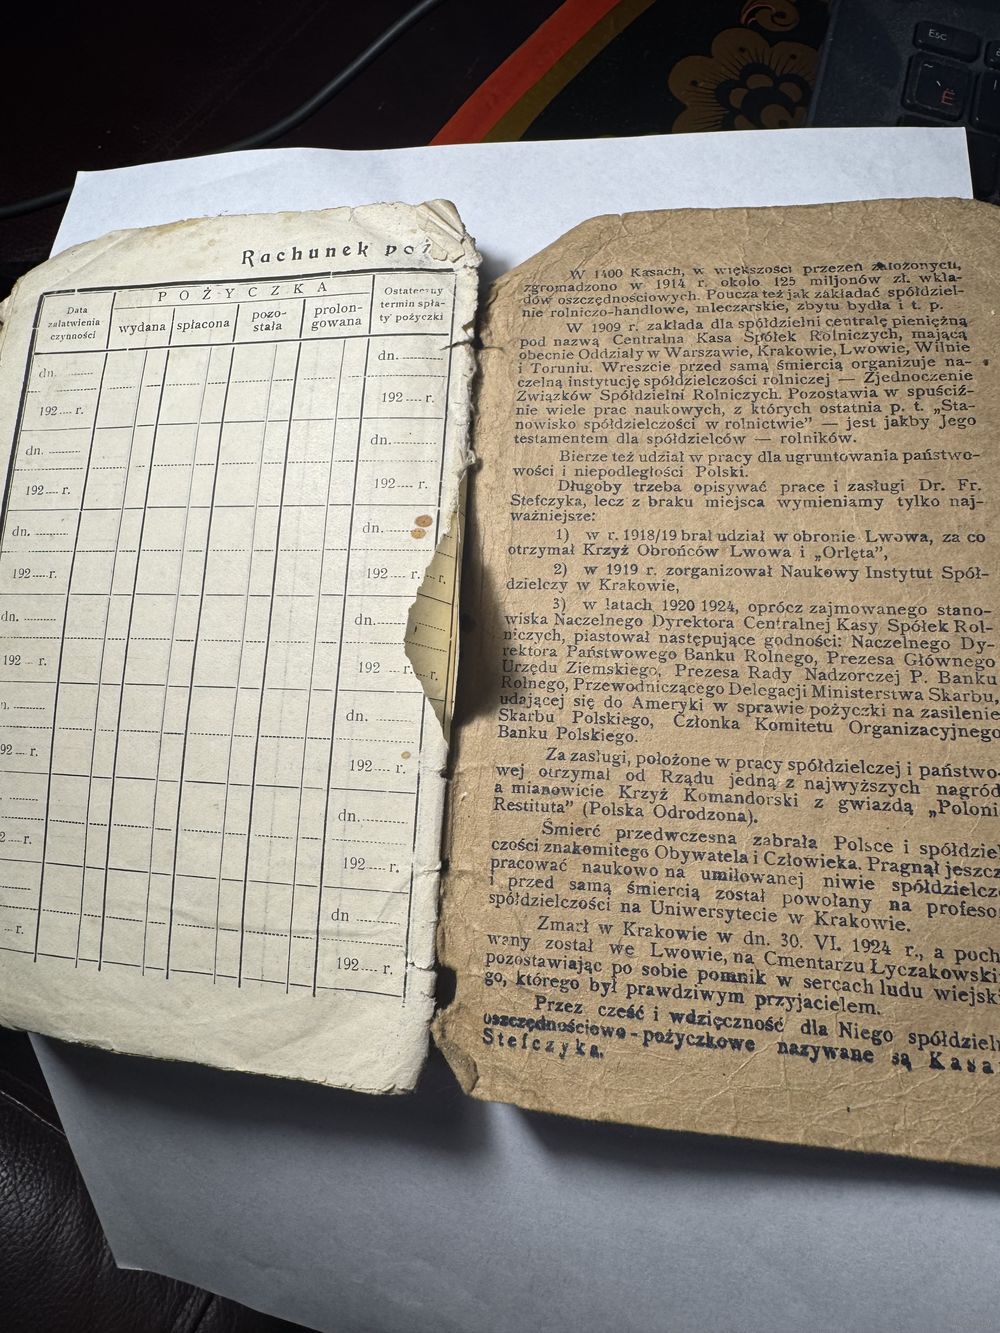 Esc
Ë
Rachunek
Data
załatwienia
czynności
POŻYCZKA
wydana
spłacona
pozo-
stała
prolon-
gowana
Ostateczny
termin spła-
ty pożyczki
dn. dn.
192 r. 192 r.
dn. dn.
192 r. 192 r.
dn. dn.
192 r. 192 r. r.
dn. dn.
192 r. 192 r. r.
n. dn.
92 r. 192 r.
dn.
2 r. 192 r.
dn
r. 192 r.
W 1400 Kasach, w większości przezeń założonych,
zgromadzono w 1914 r. około 125 miljonów zł. wkła-
dów oszczędnościowych. Poucza też jak zakładać spółdziel-
nie rolniczo-handlowe, mleczarskie, zbytu bydła i t. p.
W 1909 r. zakłada dla spółdzielni centralę pieniężną
pod nazwą Centralna Kasa Spółek Rolniczych, mającą
obecnie Oddziały w Warszawie, Krakowie, Lwowie, Wilnie
i Toruniu. Wreszcie przed samą śmiercią organizuje na-
czelną instytucję spółdzielczości rolniczej — Zjednoczenie
Związków Spółdzielni Rolniczych. Pozostawia w spuściź-
nie wiele prac naukowych, z których ostatnia p. t. „Sta-
nowisko spółdzielczości w rolnictwie" — jest jakby Jego
testamentem dla spółdzielców — rolników.
Bierze też udział w pracy dla ugruntowania państwo-
wości i niepodległości Polski.
Długoby trzeba opisywać prace i zasługi Dr. Fr.
Stefczyka, lecz z braku miejsca wymieniamy tylko naj-
ważniejsze:
1) w r. 1918/19 brał udział w obronie Lwowa, za co
otrzymał Krzyż Obrońców Lwowa i „Orlęta",
2) w 1919 r. zorganizował Naukowy Instytut Spół-
dzielczy w Krakowie,
3) w latach 1920 1924, oprócz zajmowanego stano-
wiska Naczelnego Dyrektora Centralnej Kasy Spółek Rol-
niczych, piastował następujące godności: Naczelnego Dy-
rektora Państwowego Banku Rolnego, Prezesa Głównego
Urzędu Ziemskiego, Prezesa Rady Nadzorczej P. Banku
Rolnego, Przewodniczącego Delegacji Ministerstwa Skarbu,
udającej się do Ameryki w sprawie pożyczki na zasilenie
Skarbu Polskiego, Członka Komitetu Organizacyjnego
Banku Polskiego.
Za zasługi, położone w pracy spółdzielczej i państwo-
wej otrzymał od Rządu jedną z najwyższych nagród
a mianowicie Krzyż Komandorski z gwiazdą „Poloni
Restituta" (Polska Odrodzona).
Śmierć przedwczesna zabrała Polsce i spółdziel
czości znakomitego Obywatela i Człowieka. Pragnął jeszcz
pracować naukowo na umiłowanej niwie spółdzielcz
i przed samą śmiercią został powołany na profeso
spółdzielczości na Uniwersytecie w Krakowie.
Zmarł w Krakowie w dn. 30. VI. 1924 r., a poch
wany został we Lwowie, na Cmentarzu Łyczakowski
pozostawiając po sobie pomnik w sercach ludu wiejski
go, którego był prawdziwym przyjacielem.
Przez cześć i wdzięczność dla Niego spółdzieln
oszczędnościowo-pożyczkowe nazywane są Kasa
Stefczyka.